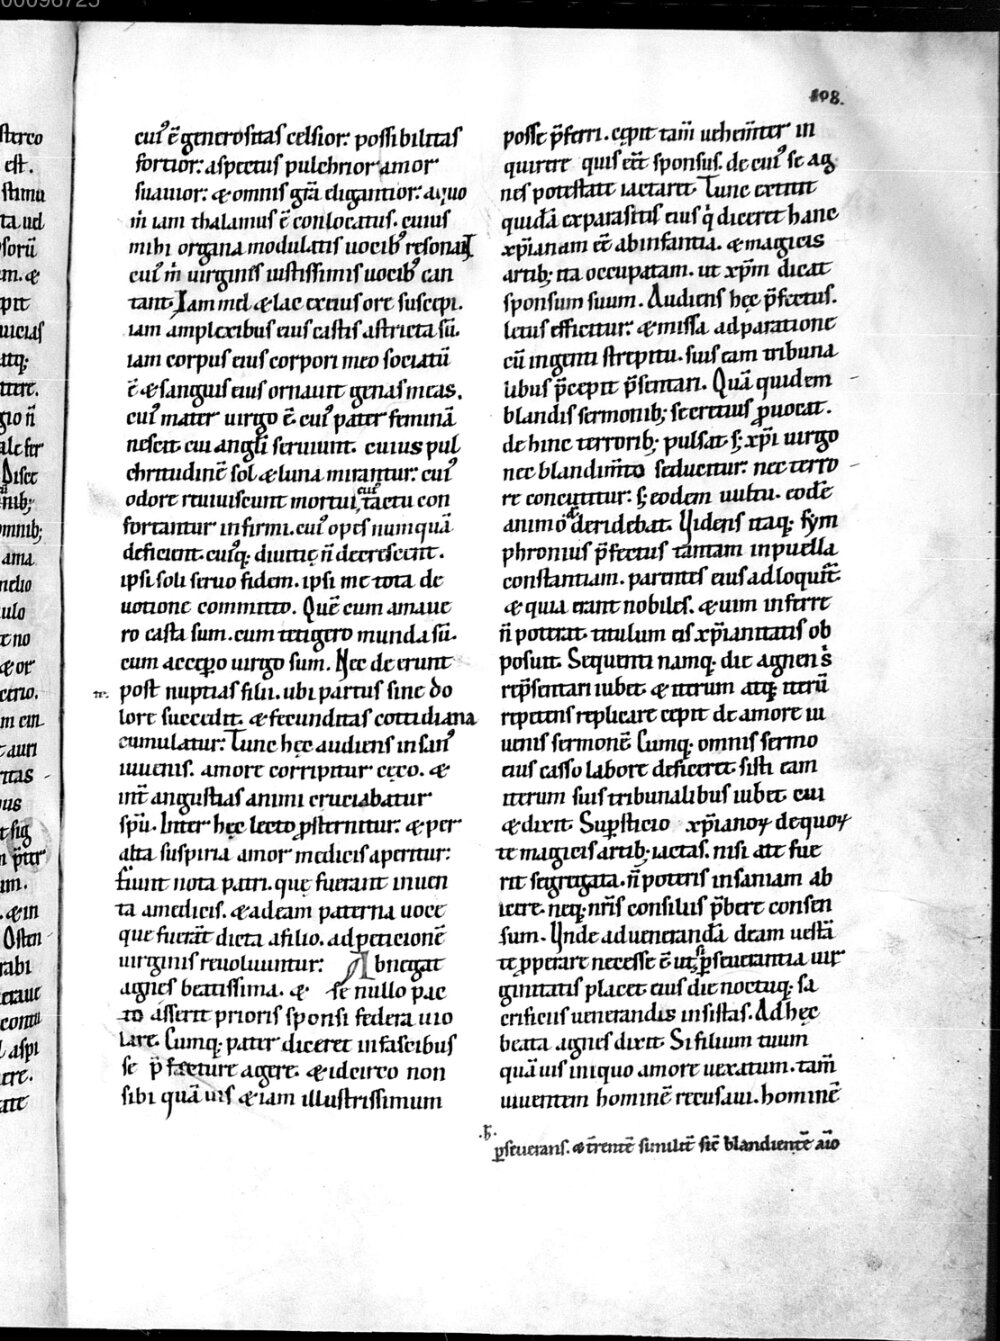 00098725
108.
cui᷒ ē generositas celsior: possibilitas
fortior: aspectus pulchrior amor
suauior: & omnis gr̄a eligantior: a quo
m̄ iam thalamus ē conlocatus. cuius
mihi organa modulatis uocib᷒ resonant
cui᷒ m̄ uirgines iustissimis uocib᷒ can
tant. Iam mel & lac ex eius ore suscepi.
iam amplexibus eius castis astricta sū.
iam corpus eius corpori meo sociatū
ē & sanguis eius ornauit genas meas.
cui᷒ mater uirgo ē cui᷒ pater feminā
nescit. cui angli seruiunt. cuius pul
chritudinē sol & luna mirantur: cui᷒
odore reuiuiscunt mortui, cui᷒ tactu con
fortantur infirmi. cui᷒ opes numquā
deficient. cui᷒q; diuitię n̄ decrescent.
ipsi soli seruo fidem. ipsi me tota de
uotione committo. Quē cum amaue
ro casta sum. cum tetigero munda sū.
cum accepero uirgo sum. Nec de erunt
post nuptias filii. ubi partus sine do
lore succedit. & fecunditas cottidiana
cumulatur: Tunc hęc audiens insan᷒
iuuenis. amore corripitur cęco. &
int̄ angustias animi cruciabatur
sp̄u. Inter hęc lecto ꝓsternitur. & per
alta suspiria amor medicis aperitur:
fiunt nota patri. quę fuerant inuen
ta a medicis. & adeam paterna uoce
que fuerāt dicta afilio. ad peticionē
uirginis reuoluuntur: Abnegat
agnes beatissima. & se nullo pac
to asserit prioris sponsi federa uio
lare. Cumq; pater diceret in fascibus
se p̄fecture agere. & idcirco non
sibi quāuis & iam illustrissimum
posse p̄ferri. cepit tam̄ uehem̄ter in
quirere quis eēt sponsus. de cui᷒ se ag
nes potestate iactaret. Tunc extitit
quidā exparasitis eius q̇ diceret hanc
xp̄ianam eē ab infantia. & magicis
artib; ita occupatam. ut xp̄m dicat
sponsum suum. Audiens hęc p̄fectus.
letus efficitur: & missa adparatione
cū ingenti strepitu. suis eam tribuna
libus p̄cepit p̄sentari. Quā quidem
blandis sermonib; secretius ꝓuocat.
dehinc terrorib; pulsat s; xp̄i uirgo
nec blandim̄to seducitur. nec terro
re concutitur: s; eodem uultu. eodē
animo & deridebat. Uidens itaq; sym
phronius p̄fectus tantam in puella
constantiam. parentes eius adloquit᷑:
& quia erant nobiles. & uim inferre
n̄ poterat. titulum eis xp̄ianitatis ob
posuit. Sequenti namq; die agnen s
rep̄sentari iubet. & iterum atq; iterū
repetens replicare cepit de amore iu
uenis sermonē. Cumq; omnis sermo
eius casso labore deficeret. sisti eam
iterum suis tribunalibus iubet. cui
& dixit. Supersticio xp̄ianoꝝ de quoꝝ
te magicis artib; iactas. nisi a te fue
rit segregata. n̄ poteris insaniam ab
icere. neq; nr̄is consiliis p̄bere consen
sum. Unde ad uenerandā deam uestā
te ꝓperare necesse ē ut, si ꝑseuerantia uir
ginitatis placet eius die noctuq; sa
crificiis uenerandis insistas. Ad hęc
beata agnes dixit. Si filium tuum
quāuis iniquo amore uexatum. tam̄
uiuentem hominē recusaui. hominē
.h. ꝑseuerans. & t̄rentē similit̄ sic̄ blandientē aīo